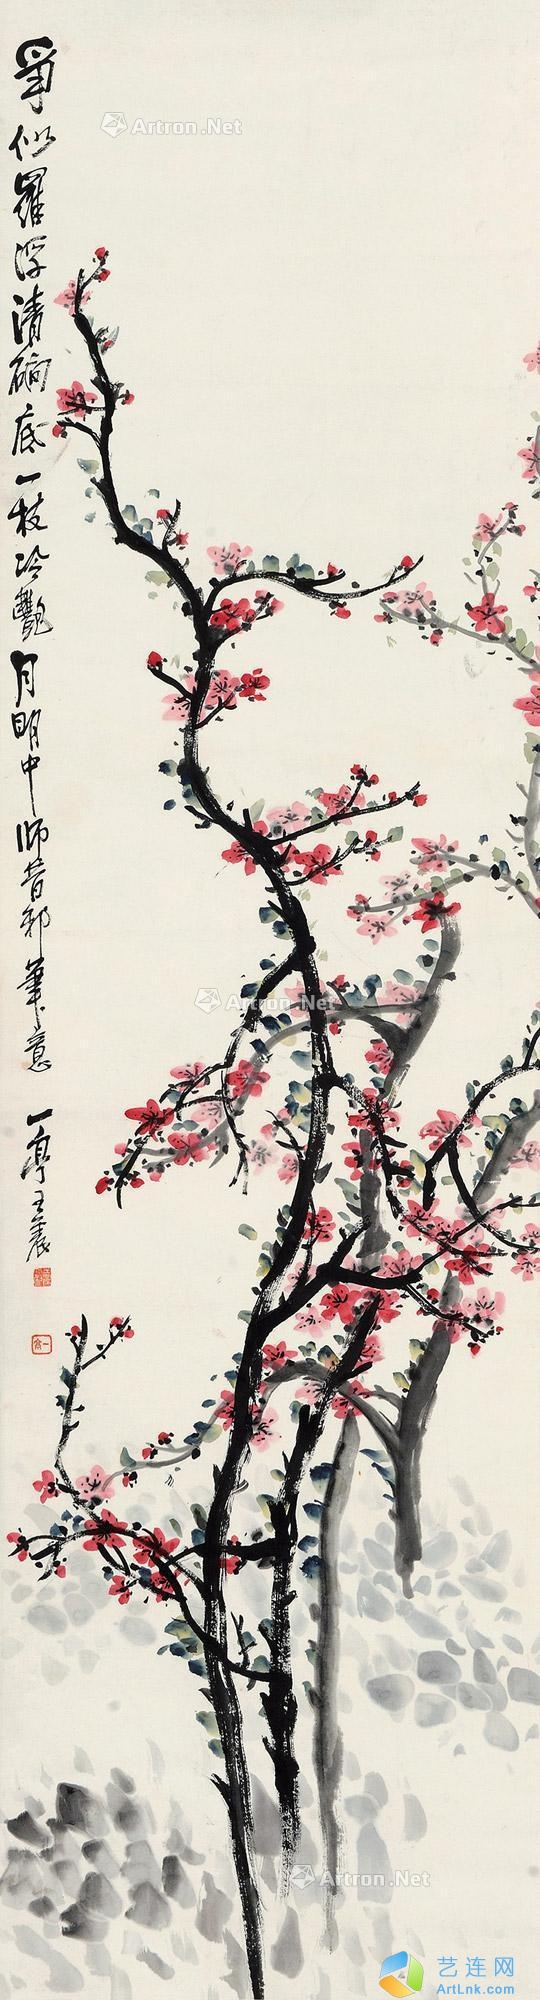 争似罗浮清磵底一枝冷艷月明中師昔邪筆意
一亭王震
Artron.Net
Artron.Net
Artron.Net
艺连网
ArtLnk.com